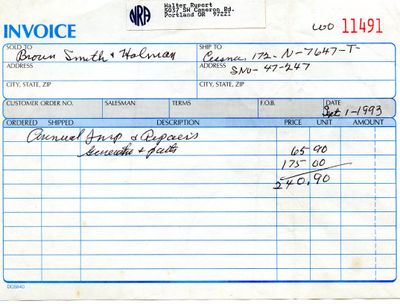 NRA
Walter Rupert
5037 SW Cameron Rd.
Portland OR 97221
INVOICE
WO 11491
SOLD TO
Brown Smith & Holman
ADDRESS
CITY, STATE, ZIP
SHIP TO
Cessna 172-N-7647-T
ADDRESS
SNO-47-247
CITY, STATE, ZIP
CUSTOMER ORDER NO. SALESMAN TERMS F.O.B. DATE
Sept 1-1993
ORDERED SHIPPED DESCRIPTION PRICE UNIT AMOUNT
Annual Insp & Repairs
& parts 65 90
175 00
240.90
DC8840